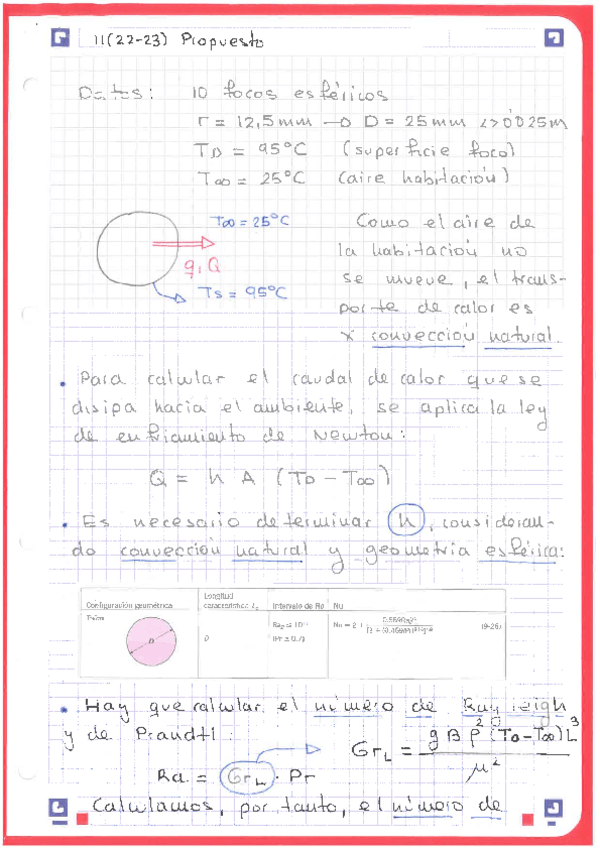 11(22-23) Propuesto
Datos: 10 focos esféricos
r = 12,5mm → D = 25mm <> 0'025m
T0 = 95°C (superficie foco)
T∞ = 25°C (aire habitación)
T∞ = 25°C
q, Q
Ts = 95°C
Como el aire de
la habitación no
se mueve, el trans-
porte de calor es
x convección natural.
• Para calular el caudal de calor que se
disipa hacia el ambiente, se aplica la ley
de enfriamiento de Newton:
Q = h A (T0 - T∞)
• Es necesario determinar h, consideran-
do convección natural y geometría esférica:
Configuración geométrica
Longitud
característica Lc
Intervalo de Ra
Nu
Esfera
D
D
(9-26)
• Hay que calular el número de Rayleigh
y de Prandtl:
GrL = g β ρ² (T0-T∞) L³ / μ²
Ra = GrL · Pr
Calulamos, por tanto, el número de